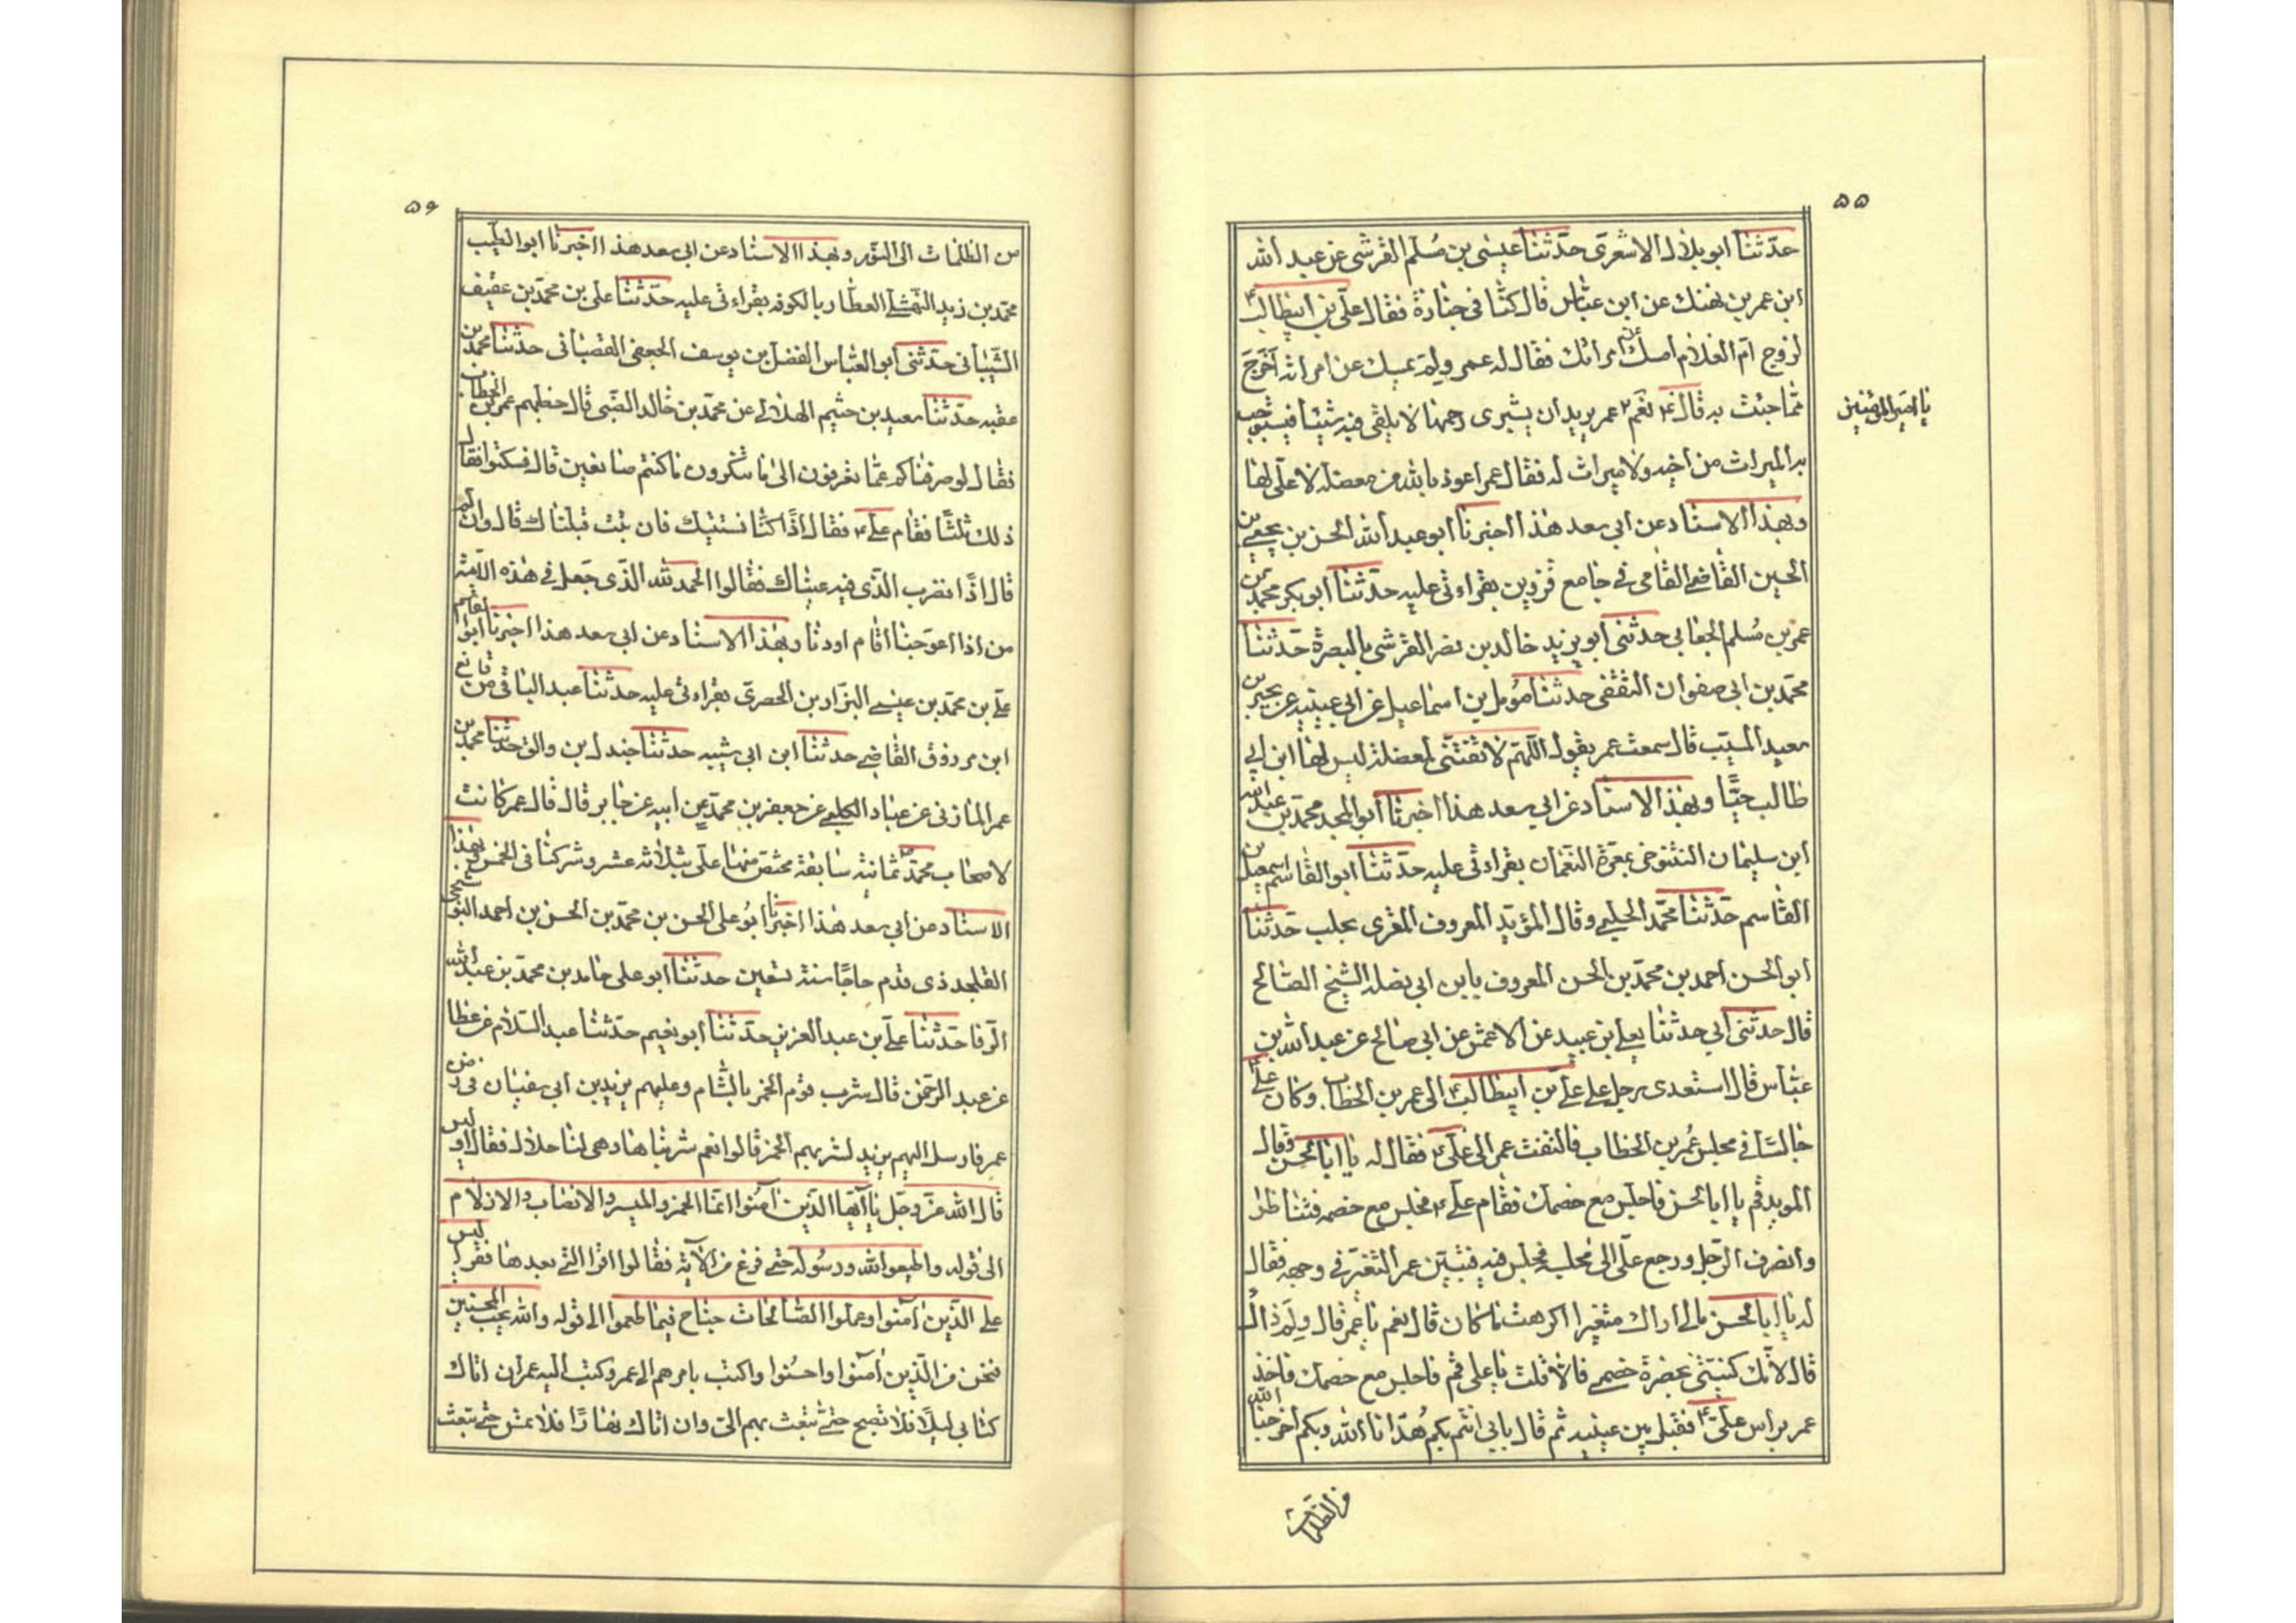 ۵۵
حدّثنا ابو بلال الاشعرى حدّثنا عيسى بن مُسلم القرشى عن عبد الله
ابن عمر بن نهنك عن ابن عباس قال كنّا فى جنازة فقال علىّ بن ابيطالب ع
لزوج ام الغلام امسك عن امراتك فقال له عمر ولم يمسك عن امراته اخرج
ممّا جئت به قال ع نعم عمر يريد ان يشترى رحمها لا يلقى فيه شيئا فيستوجب
يا امير المؤمنين
به الميراث من اخيه ولا ميراث له فقال عمر اعوذ بالله من معضلة لا على لها
وبهذا الاسناد عن ابى سعد هذا اخبرنا ابو عبد الله الحسن بن يحيى بن
الحسين القاضى القامى فى جامع قزوين بقراءتى عليه حدّثنا ابو بكر محمد بن
عمر بن مُسلم الجعابى حدثنى ابو يزيد خالد بن نضر القرشى بالبصرة حدّثنا
محمّد بن ابى صفوان الثقفى حدثنا مومل بن اسماعيل عن ابى عيينه عن يحيى بن
سعيد المسيّب قال سمعت عمر يقول اللّهمّ لا تقتنّى لمعضلة ليس لها ابن ابى
طالب حيّا وبهذا الاسناد عن ابى سعد هذا اخبرنا ابو المجد محمّد بن عبد الله
ابن سليمان التنوخى بمعرة النعمان بقراءتى عليه حدّثنا ابو القاسم اسمعيل بن
القاسم حدّثنا محمّد الحلبى وقال المؤيّد المعروف المقرى بحلب حدّثنا
ابو الحسن احمد بن محمّد بن الحسن المعروف بابن ابى نضلة الشيخ الصالح
قال حدثنى ابى حدثنا يعلى بن عبيد عن الاعمش عن ابى صالح عن عبد الله بن
عبّاس قال استعدى رجل على علىّ بن ابيطالب ع الى عمر بن الخطاب وكان علىّ ع
جالسًا فى مجلس عُمر بن الخطاب فالتفت عمر الى علىّ ع فقال له يا ابا الحسن وقال
المويد قم يا ابا الحسن فاجلس مع خصمك فقام علىّ ع فجلس مع خصمه فتناظرا
وانصرف الرّجل ورجع علىّ الى مجلسه فجلس فيه فتبيّن عمر التغيّر فى وجهه فقال
له يا ابا الحسن مالى اراك متغيرا اكرهت ما كان قال نعم يا عمر قال ولم ذاك
قال لانّك كنيتنى بحضرة خصمى فالا قلت يا على قم فاجلس مع خصمك فاخذ
عمر براس علىّ ع فقبل بين عينيه ثم قال بابى انتم بكم هُدانا الله وبكم اخرجنا الله
من الظلمات
۵۶
من الظلمات الى النّور وبهذا الاسناد عن ابى سعد هذا اخبرنا ابو الطيّب
محمّد بن زيد النهشلى العطّار بالكوفه بقراءتى عليه حدّثنا على بن محمّد بن عقيف
الشّيبانى حدّثنى ابو العبّاس الفضل بن يوسف الجعفى القصبانى حدّثنا محمّد بن
عقبه حدّثنا سعيد بن خثيم الهلالى عن محمّد بن خالد الضّبى قال خطبهم عمر بن الخطاب
فقال لو صرفناكم عمّا تعرفون الى ما تنكرون ما كنتم صانعين قال فسكتوا فقال
ذلك ثلثًا فقام علىّ ع فقال اذًا كنّا نستتيبك فان تبت قبلناك قال وان لم
قال اذًا نضرب الّذى فيه عيناك فقالوا الحمد لله الّذى جعل فى هذه الامّة
من اذا اعوججنا اقام اودنا وبهذا الاسناد عن ابى سعد هذا اخبرنا ابو القاسم
علىّ بن محمّد بن عيسى البزّاد بن الحصرى بقراءتى عليه حدّثنا عبد الباقى بن قانع
ابن مرزوق القاضى حدّثنا ابن ابى شيبه حدّثنا جندل بن والق حدّثنا محمّد بن
عمر المازنى عن عباد الكلبى عن جعفر بن محمّد عن ابيه عن جابر قال قال عمر كانت
لاصحاب محمّد ص ثمانية سابقة مختصّ منها علىّ بثلاثه عشر وشركنا فى الخمس وبهذا
الاسناد عن ابى سعد هذا اخبرنا ابو على الحسن بن محمّد بن الحسن بن احمد
قدم حاجًا سنة تسعين حدّثنا ابو على حامد بن محمّد بن عبد الله
الرّفا حدّثنا علىّ بن عبد العزيز حدّثنا ابو نعيم حدّثنا عبد السّلام عن عطا
عن عبد الرّحمن قال شرب قوم الخمر بالشّام وعليهم يزيد بن ابى سفيان فى زمن
عمر فارسل اليهم يزيد لشربهم الخمر قالوا نعم شربناها وهى لنا حلال فقال او ليس
قال الله عزّ وجل يا ايّها الّذين امنوا انّما الخمر والميسر والانصاب والازلام
الى قوله واطيعوا الله ورسُوله حتّى فرغ من الآية فقالوا اقرا التى بعدها فقرا ليس
على الّذين امنوا وعملوا الصّالحات جناح فيما طعموا الى قوله والله يحب المحسنين
فنحن من الّذين امنوا واحسُنوا واكتب بامرهم الى عمر وكتب اليه عمر ان اتاك
كتابى ليلًا فلا تصبح حتّى تبعث بهم الىّ وان اتاك نهارًا فلا تمس حتّى تبعث